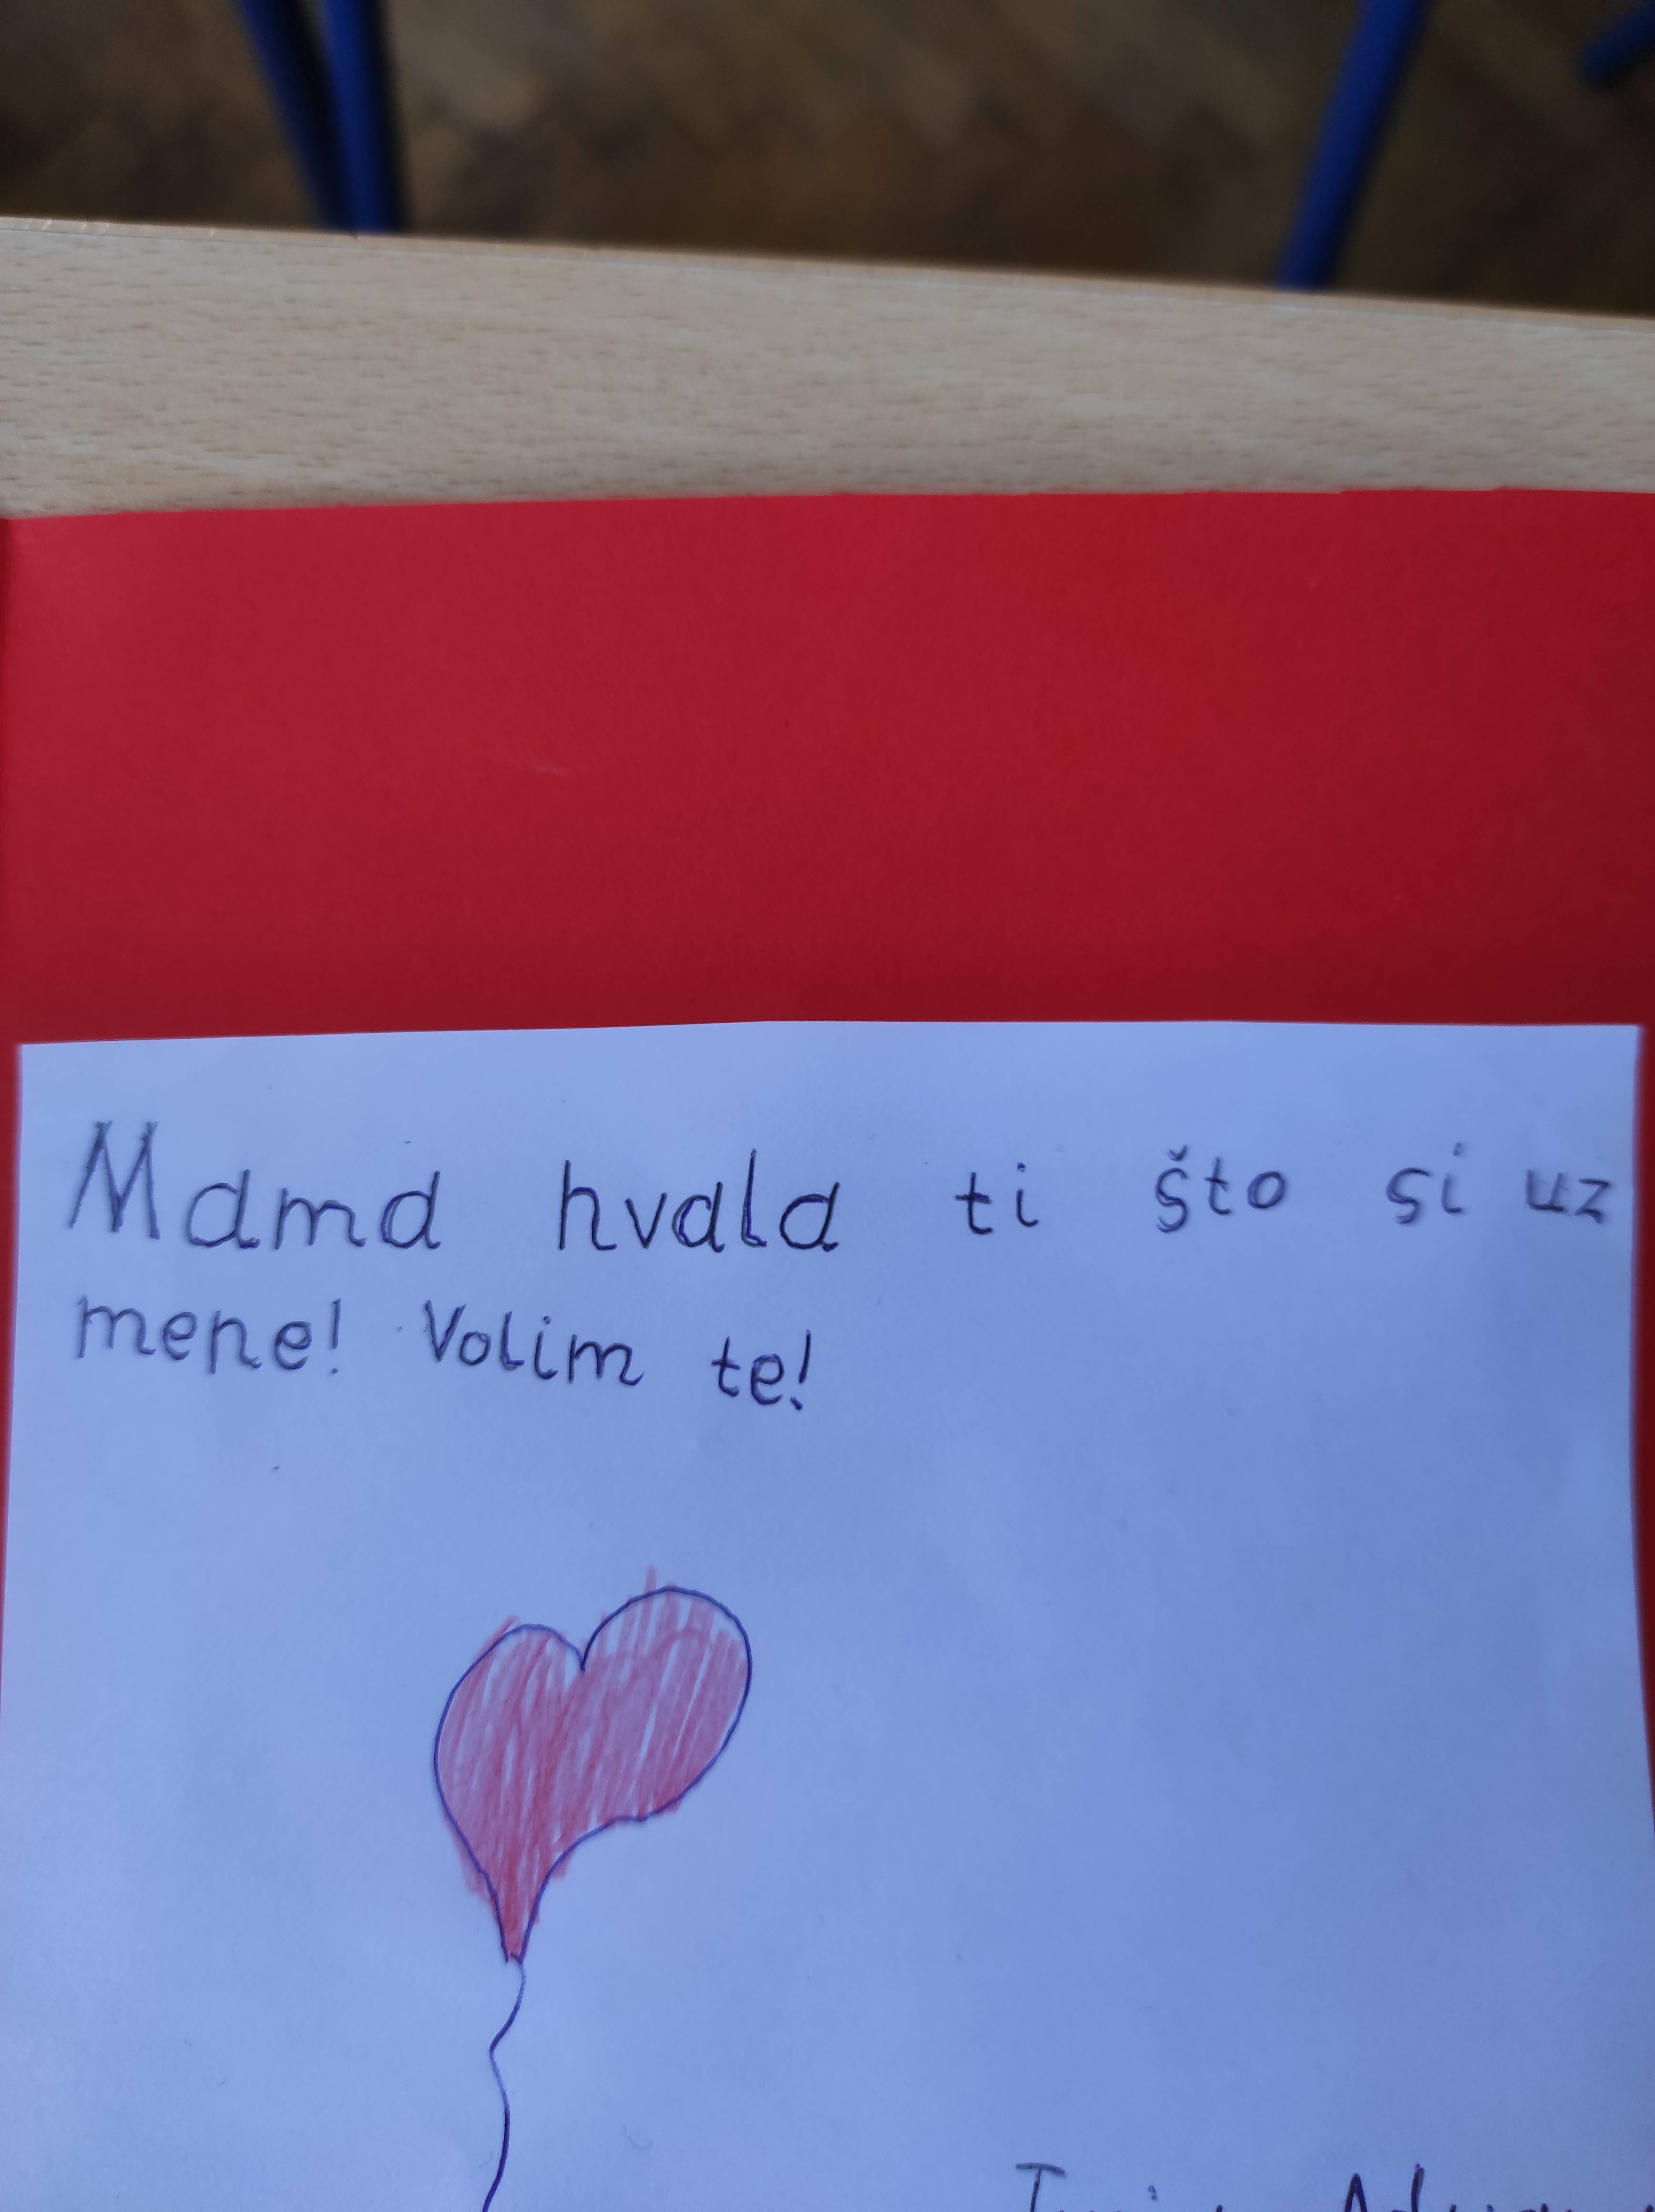 Mama hvala ti što si uz
mene! Volim te!